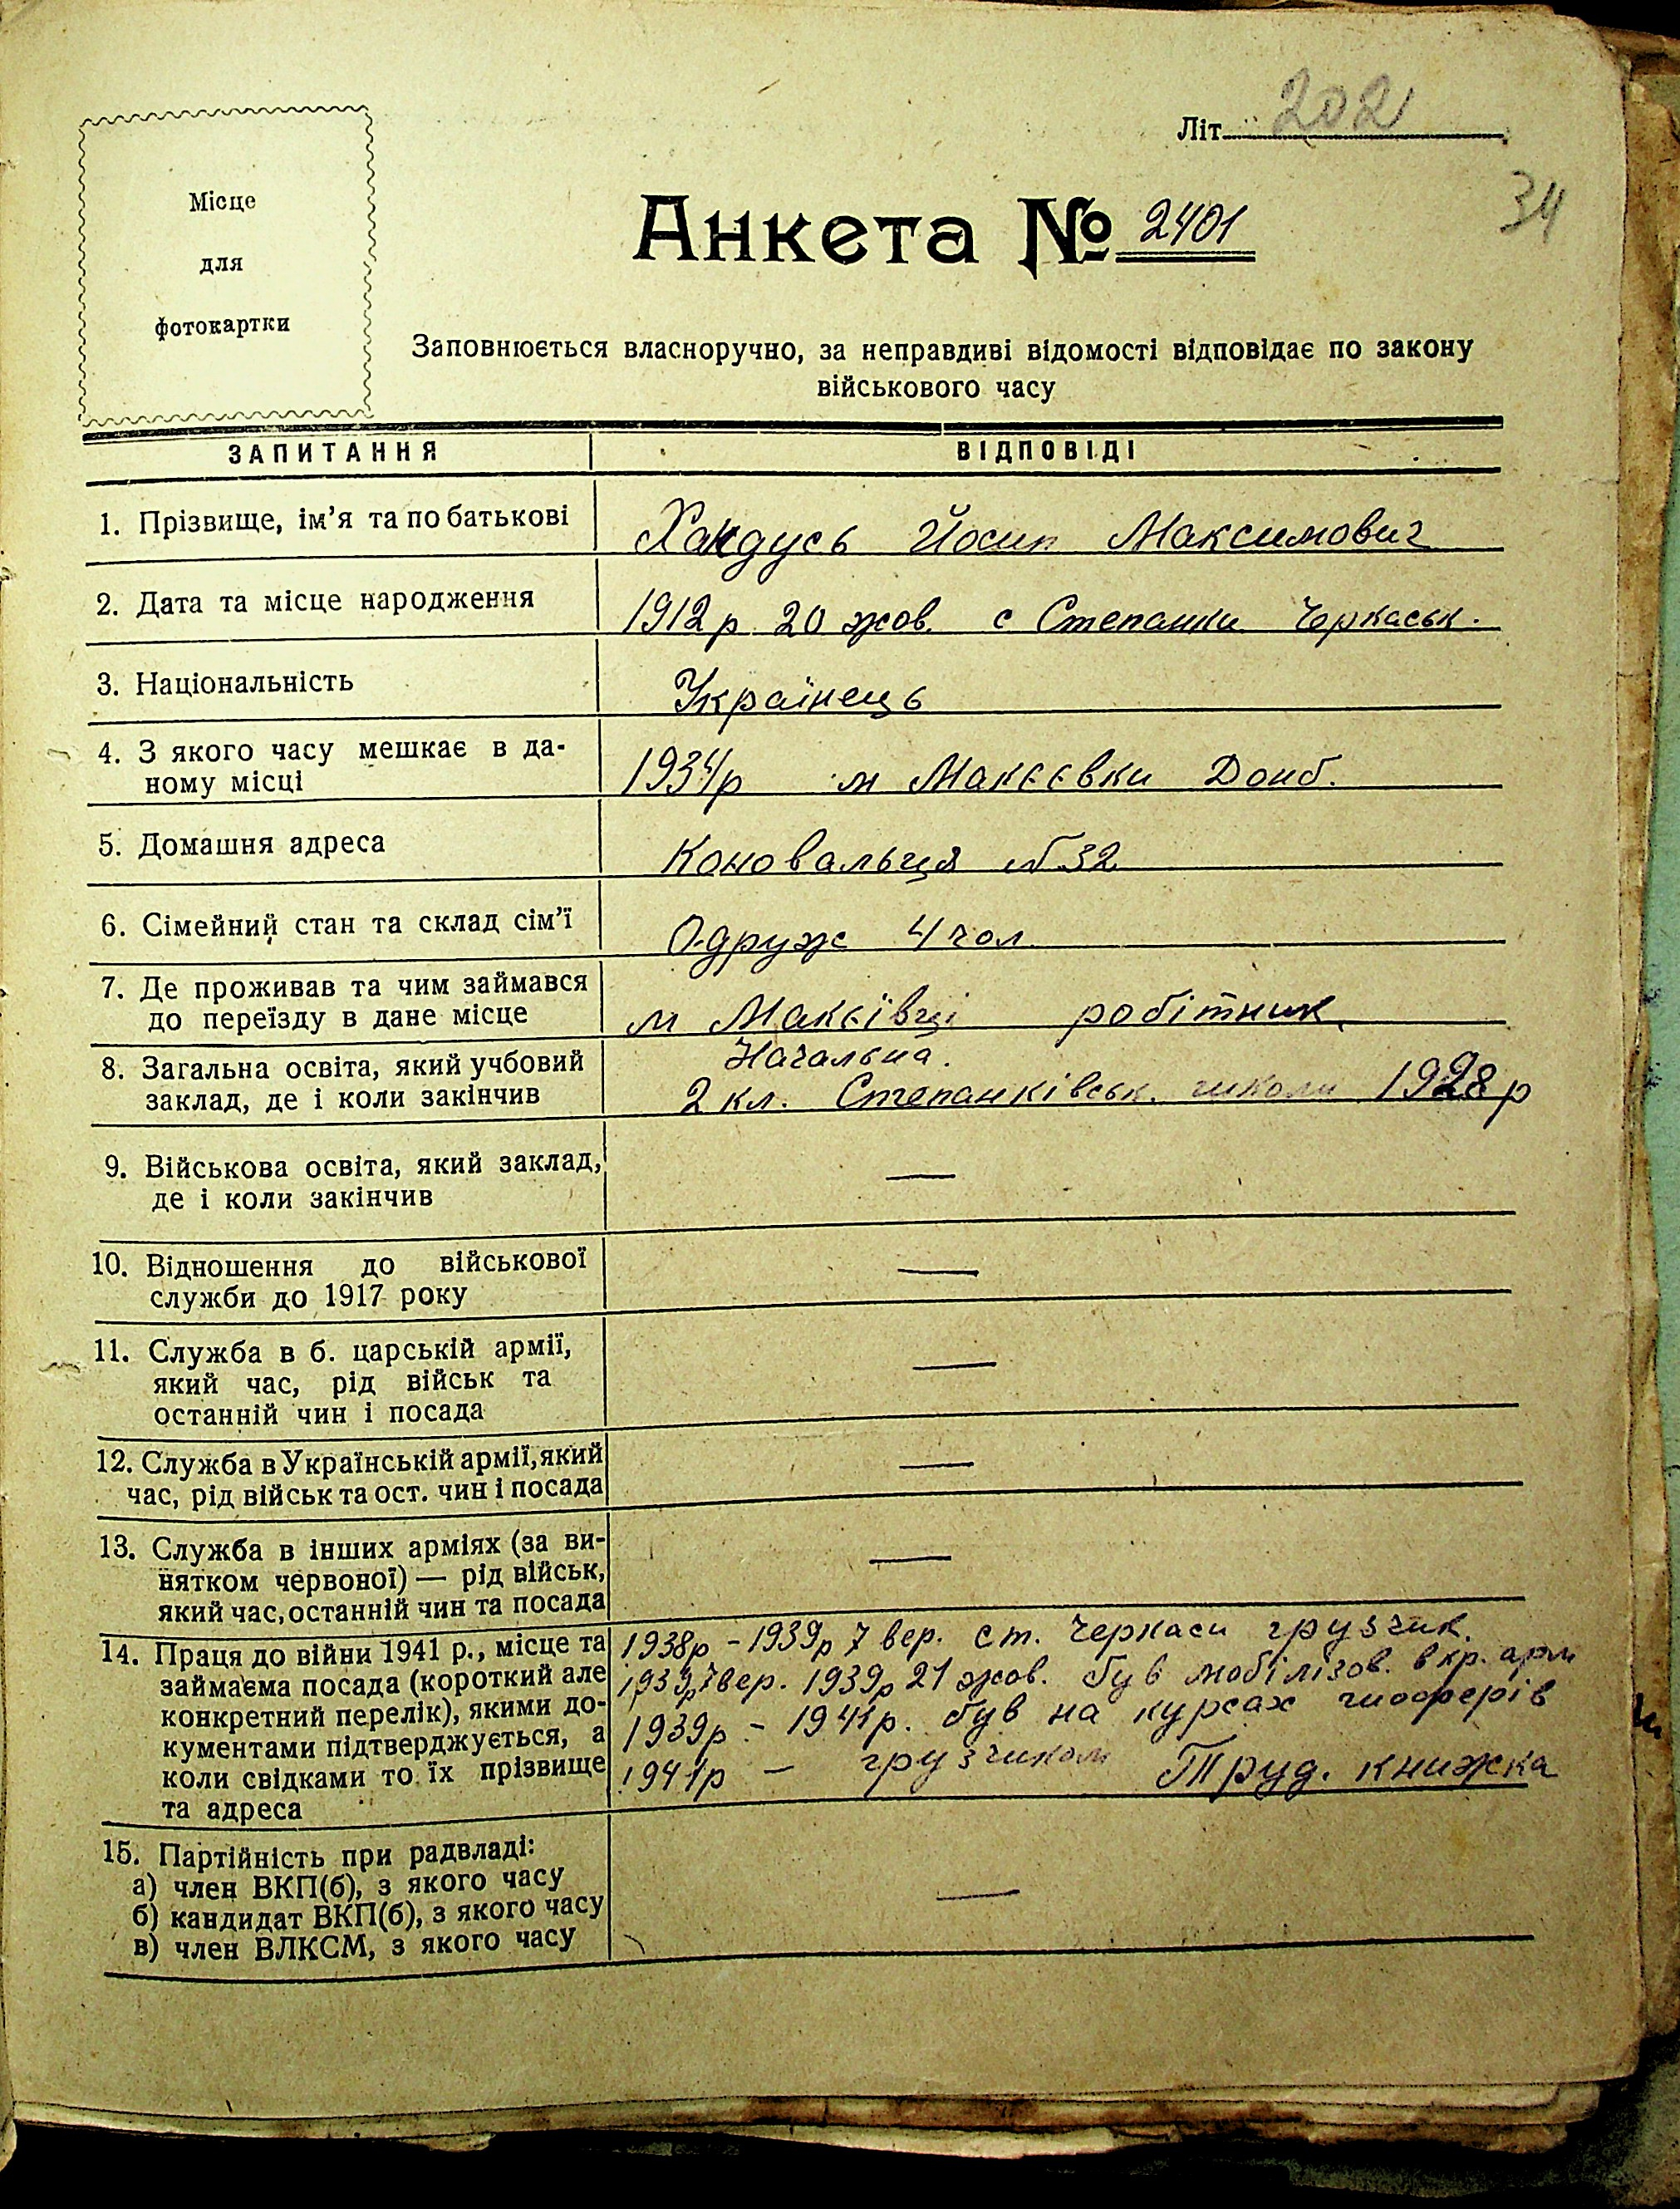 Літ. 202
34
Місце
для
фотокартки
Анкета № 2401
Заповнюється власноручно, за неправдиві відомості відповідає по закону
військового часу
ЗАПИТАННЯ ВІДПОВІДІ
1. Прізвище, ім'я та по батькові Хандусь Йосип Максимович
2. Дата та місце народження 1912р 20 жов. с Степанки Черкаськ.
3. Національність Українець
4. З якого часу мешкає в да-
ному місці 1934р м Макєєвки Донб.
5. Домашня адреса Коновальця №32
6. Сімейний стан та склад сім'ї Одруж 4 чол
7. Де проживав та чим займався
до переїзду в дане місце м Макєївці робітник
8. Загальна освіта, який учбовий Начальна.
заклад, де і коли закінчив 2 кл. Степанківськ. школи 1928р
9. Військова освіта, який заклад, —
де і коли закінчив
10. Відношення до військової —
служби до 1917 року
11. Служба в б. царській армії, —
який час, рід військ та
останній чин і посада
12. Служба в Українській армії, який —
час, рід військ та ост. чин і посада
13. Служба в інших арміях (за ви- —
нятком червоної) — рід військ,
який час, останній чин та посада
14. Праця до війни 1941 р., місце та 1938р - 1939р 7 вер. ст. Черкаси грузчик.
займаєма посада (короткий але 1939р 7 вер. 1939р 21 жов. був мобілізов. в кр. арм
конкретний перелік), якими до- 1939р - 1941р. був на курсах шофферів
кументами підтверджується, а 1941р - грузчиком Труд. книжка
коли свідками то їх прізвище
та адреса
15. Партійність при радвладі: —
а) член ВКП(б), з якого часу
б) кандидат ВКП(б), з якого часу
в) член ВЛКСМ, з якого часу